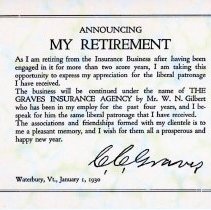 ANNOUNCING
MY RETIREMENT
As I am retiring from the Insurance Business after having been
engaged in it for more than two score years, I am taking this
opportunity to express my appreciation for the liberal patronage
I have received.
The business will be continued under the name of THE
GRAVES INSURANCE AGENCY by Mr. W. N. Gilbert
who has been in my employ for the past four years, and I be-
speak for him the same liberal patronage that I have received.
The associations and friendships formed with my clientele is to
me a pleasant memory, and I wish for them all a prosperous and
happy new year.
C.C. Graves
Waterbury, Vt., January 1, 1930